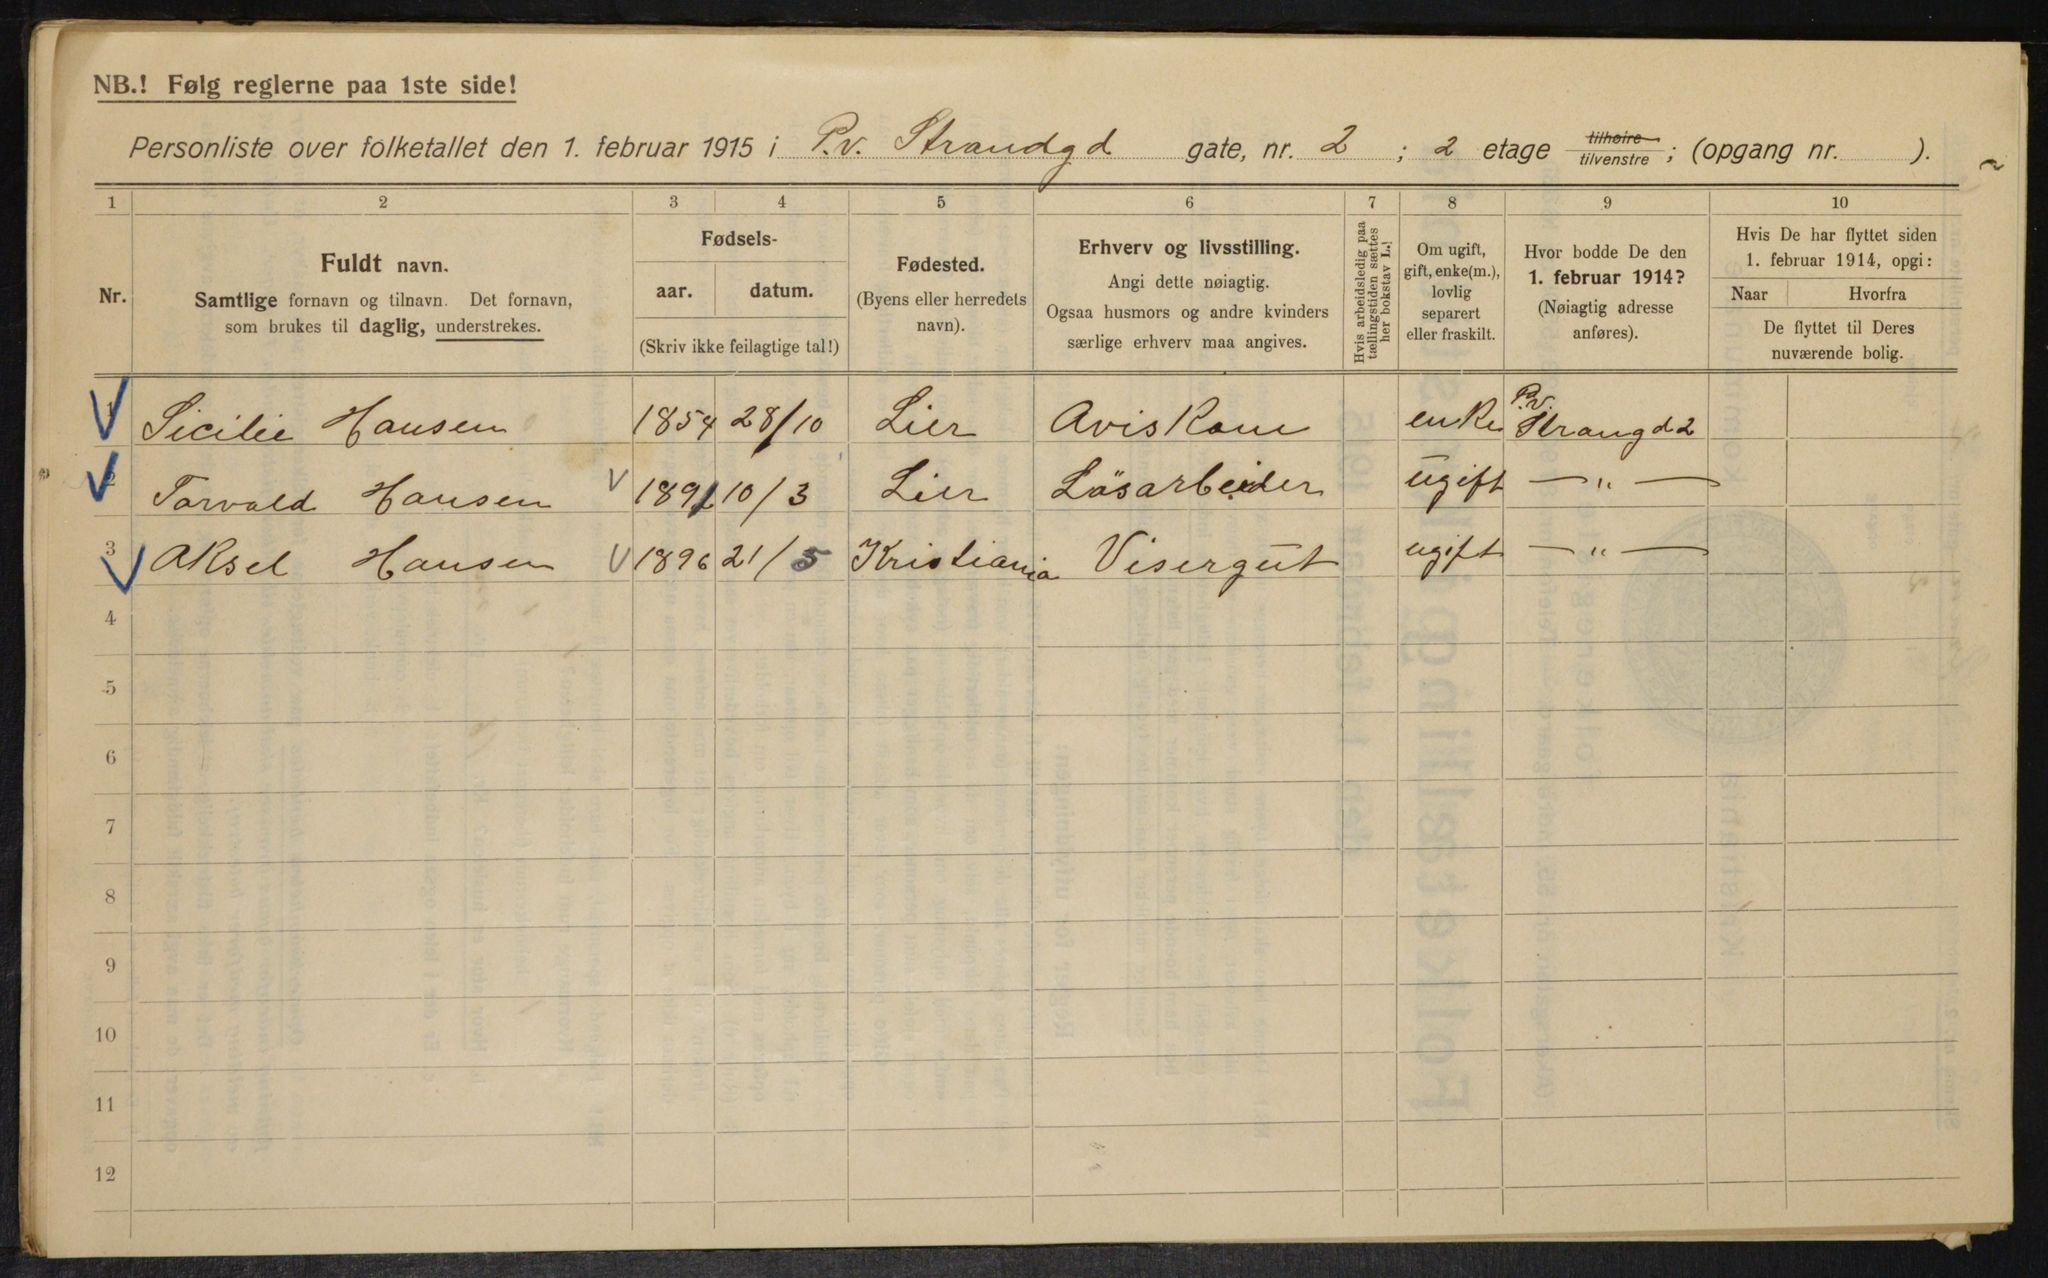 NB.! Følg reglerne paa 1ste side!
Personliste over folketallet den 1. februar 1915 i P.v. Strandgd gate, nr. 2; 2 etage tilhøire tilvenstre; (opgang nr. ).
1 2 3 4 5 6 7 8 9 10
Nr.
Fuldt navn.
Samtlige fornavn og tilnavn. Det fornavn,
som brukes til daglig, understrekes.
Fødsels-
aar. datum.
(Skriv ikke feilagtige tal!)
Fødested.
(Byens eller herredets
navn).
Erhverv og livsstilling.
Angi dette nøiagtig.
Ogsaa husmors og andre kvinders
særlige erhverv maa angives.
Hvis arbeidsledig paa
tællingstiden sættes
her bokstav L.!
Om ugift,
gift, enke(m.),
lovlig
separert
eller fraskilt.
Hvor bodde De den
1. februar 1914?
(Nøiagtig adresse
anføres).
Hvis De har flyttet siden
1. februar 1914, opgi:
Naar Hvorfra
De flyttet til Deres
nuværende bolig.
1 Sicilie Hansen 1854 28/10 Lier Aviskone enke P.v. Strangd 2
2 Torvald Hansen 1891 10/3 Lier Lösarbeider ugift —„—
3 Aksel Hansen 1896 21/5 Kristiania Visergut ugift —„—
4
5
6
7
8
9
10
11
12